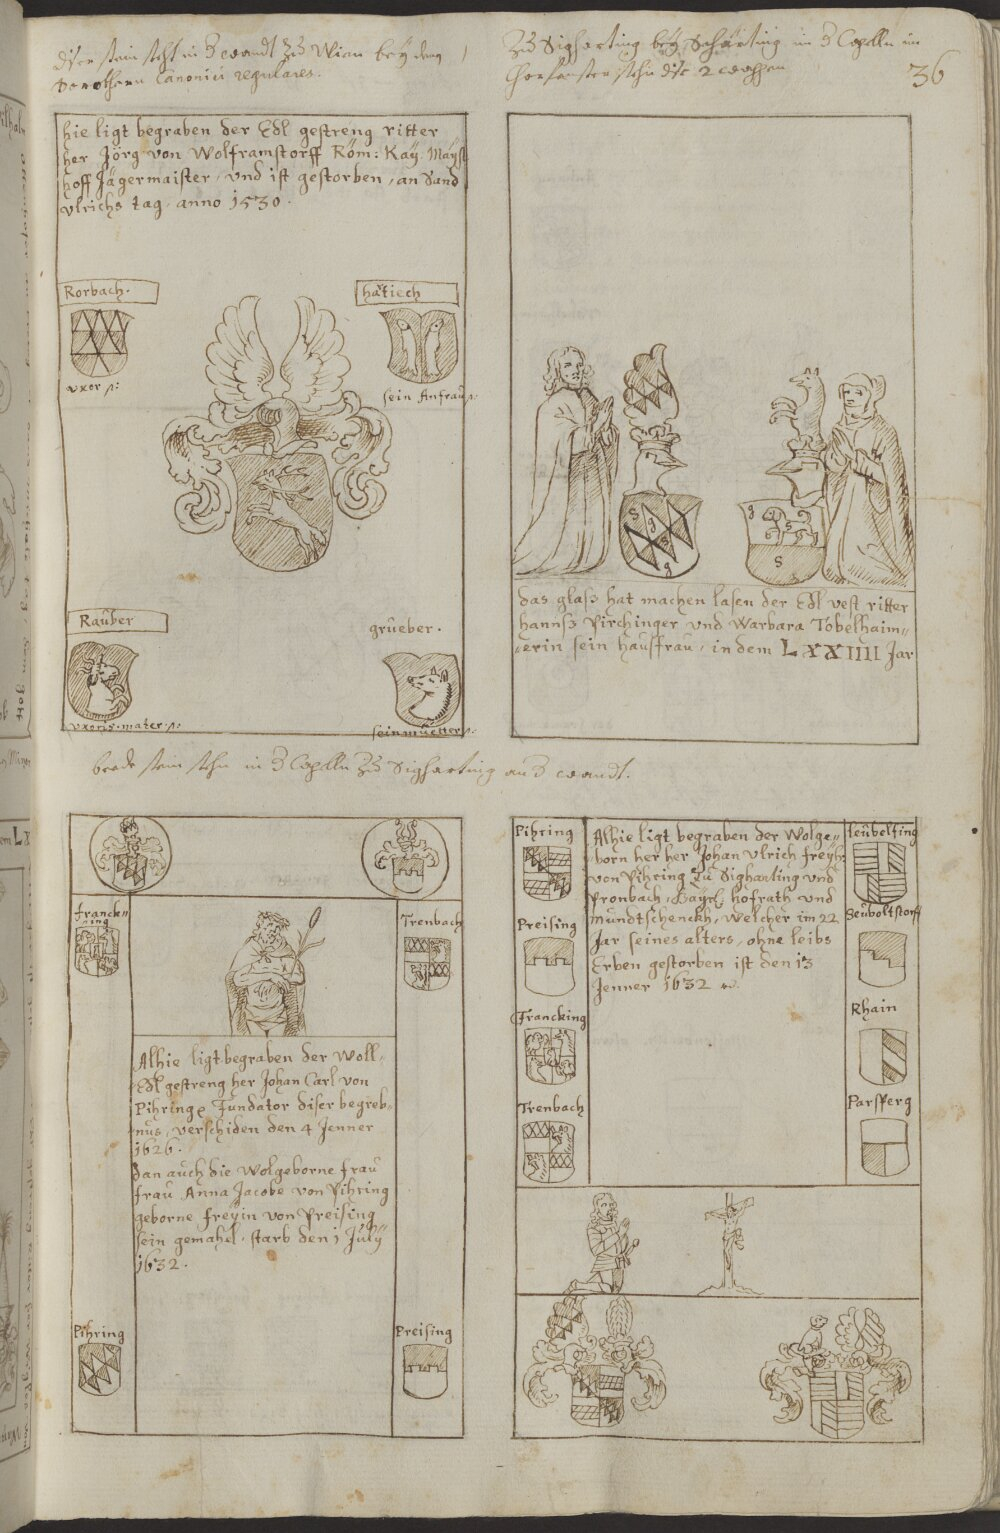 diser stein steht in d wandt Zu Wien bey den
Dorothern Canonici regulares.
Zu Sigharting bey Schärting in d Capelln im
Chorfenster stehn dise 2 wappen
36
hie ligt begraben der Edl gestreng ritter
her Jörg von Wolframstorff Röm: Kaÿ: Maÿst
hoff Jägermaister, vnd ist gestorben, an Sand
vlrichs tag. anno 1530.
Rorbach.
vxor
hätiech
sein Anfrau
Rauber
vxoris mater
grueber.
sein muetter
S
g
S
g
g
S
das glass hat machen lasen der Edl vest ritter
hannss Pirchinger vnd Warbara Tobelhaim„
„erin sein hausfrau, in dem LXXIIII Jar
beede stein stehn in d Capelln Zu Sigharting an d wandt.
Franck„
„ing
Trenbach
Alhie ligt begraben der Woll„
Edl gestreng her Johan Carl von
Pihring, Fundator diser begreb„
nus, verschiden den 4 Jenner
1626.
dan auch die Wolgeborne frau
frau Anna Jacobe von Pihring
geborne freÿin von Preising
sein gemahel, starb den 1 Julÿ
1632.
Pihring
Preising
Pihring
Preising
Francking
Trenbach
Alhie ligt begraben der Wolge„
„born her her Johan Vlrich freÿh:
von Pihring Zu Sigharting vnd
Pronbach, Baÿrl: hofrath vnd
Mundtschenckh, welcher im 22
Jar seines alters, ohne leibs
Erben gestorben ist den 13
Jenner 1632
leubelfing
Seuboltstorff
Rhain
Parsperg